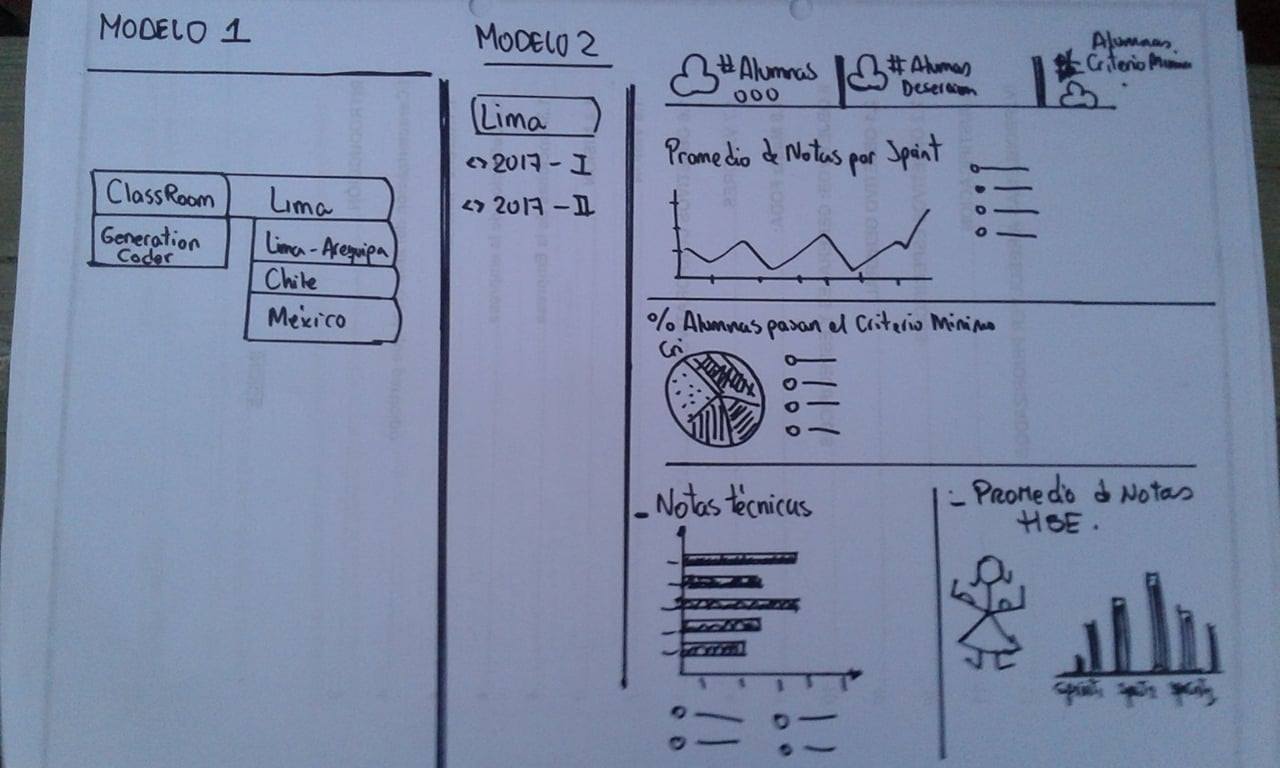 MODELO 1
ClassRoom
Generation
Coder
Lima
Lima-Arequipa
Chile
México
MODELO 2
Lima
<> 2017 - I
<> 2017 - II
# Alumnas
000
# Alumas
Desercion
Alumnas
Criterio Minimo
Promedio de Notas por Sprint
% Alumnas pasan el Criterio Minimo
Cri
- Notas técnicas
- Promedio d Notas
HSE.
Sprint1 Sprint2 Sprint3